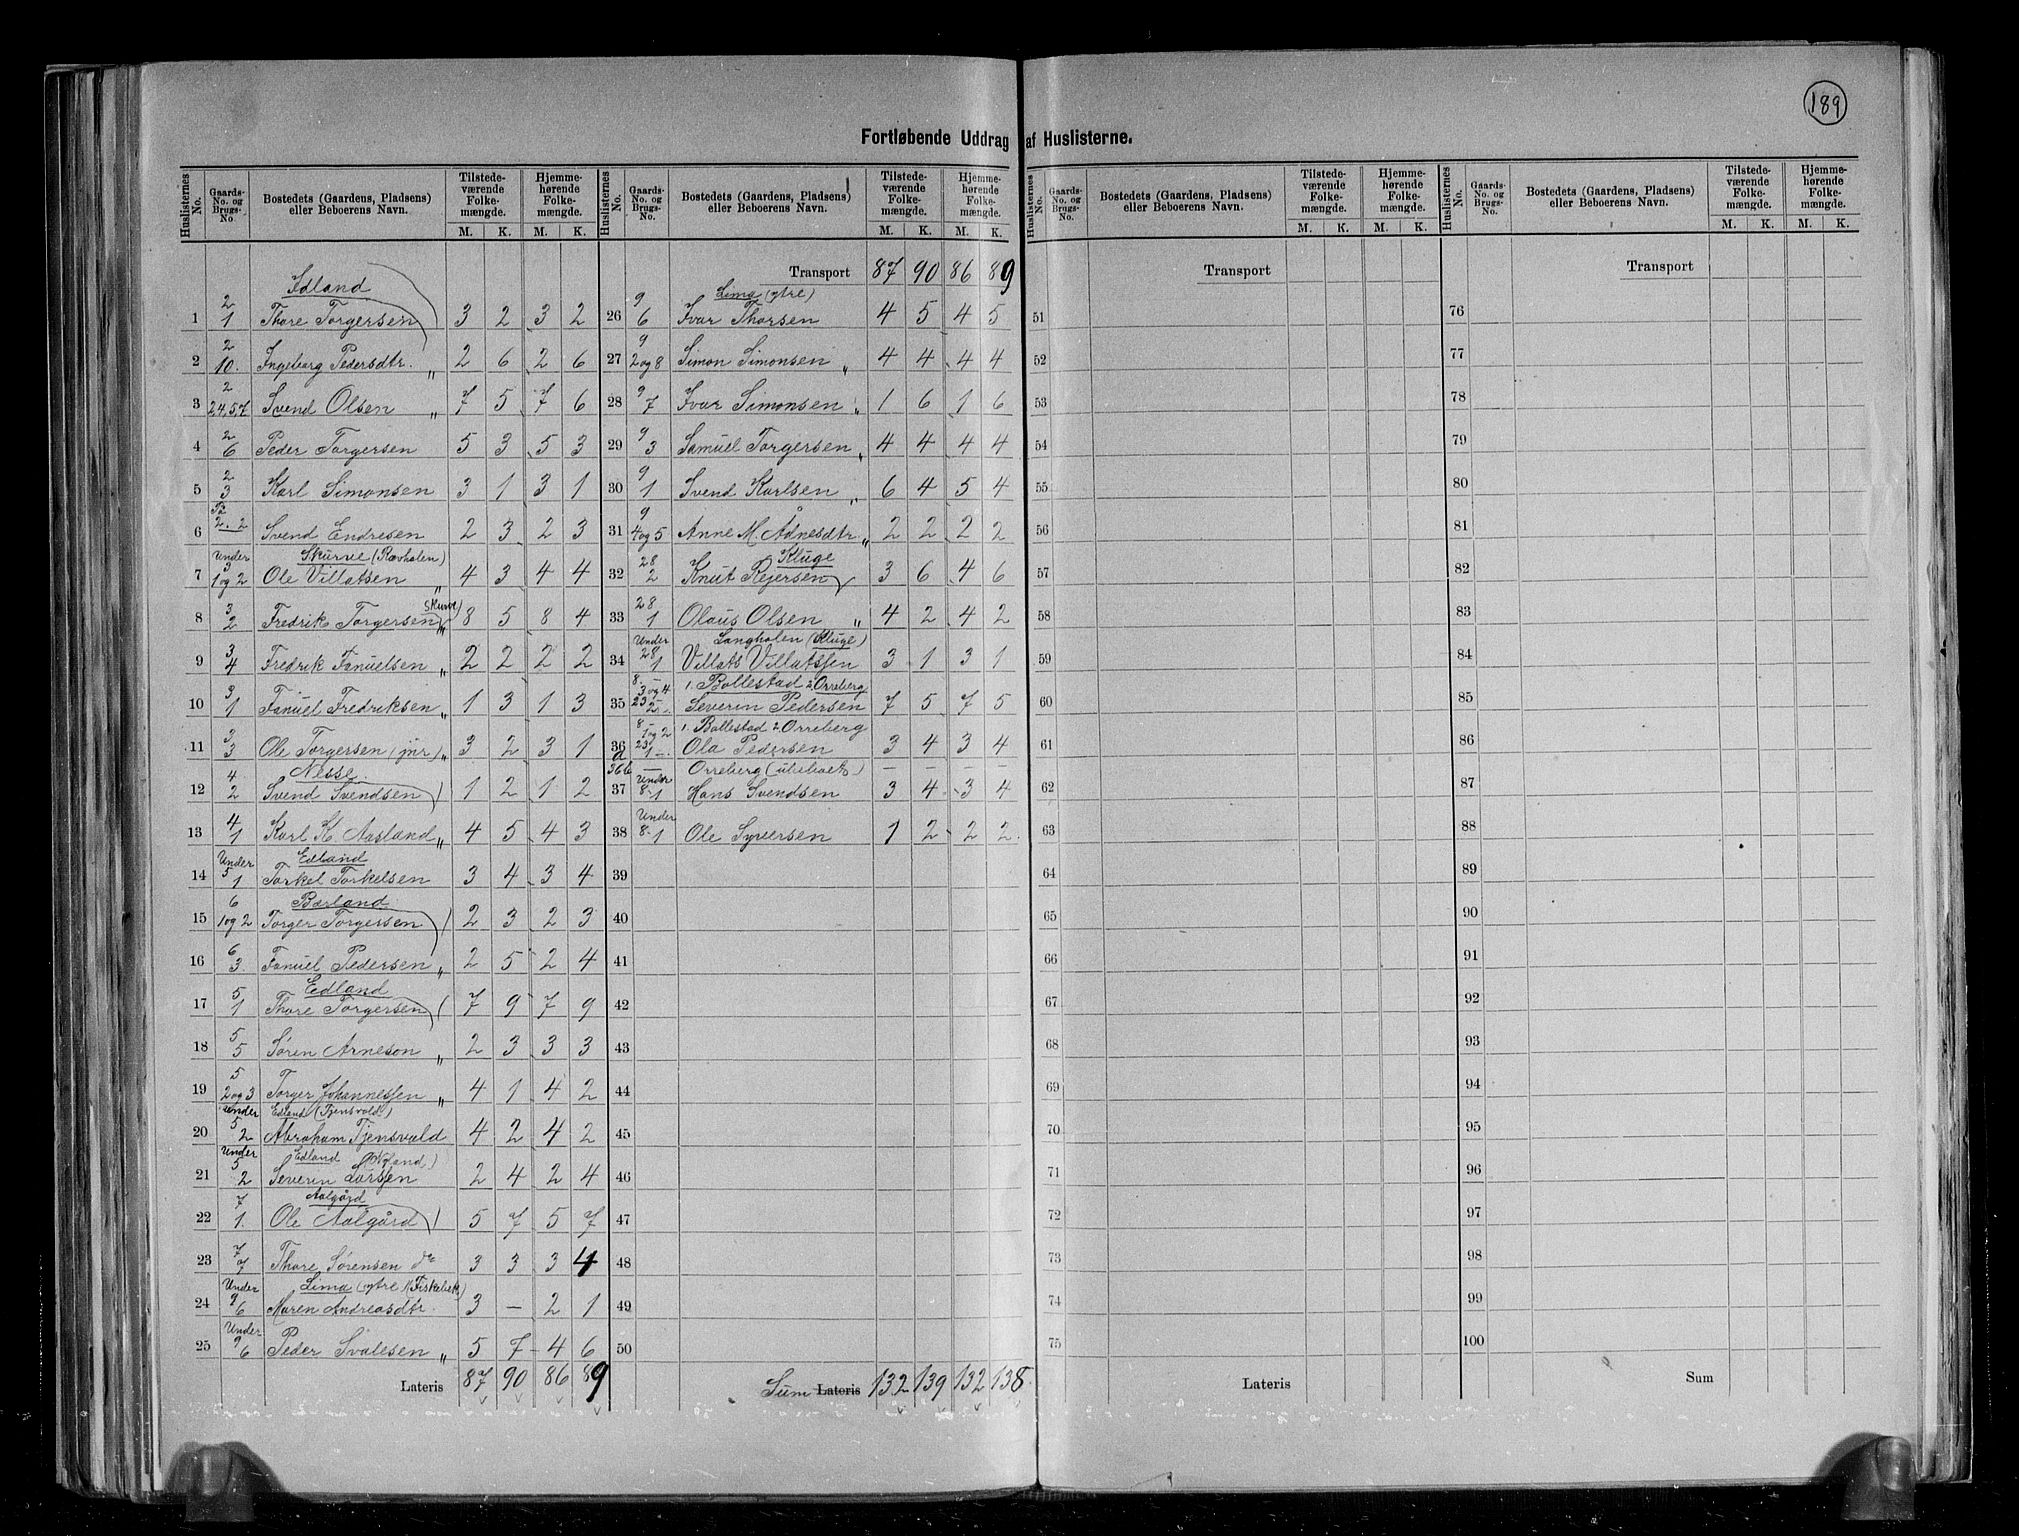 189
Fortløbende Uddrag af Huslisterne.
Huslisternes No. | Gaards-No. og Brugs-No. | Bostedets (Gaardens, Pladsens) eller Beboerens Navn. | Tilstedeværende Folkemængde. M. K. | Hjemmehørende Folkemængde. M. K.
Idland
1 | 2 1 | Thore Torgersen | 3 | 2 | 3 | 2
2 | 2 10. | Ingeborg Pedersdtr. „ | 2 | 6 | 2 | 6
3 | 2 2,4,5,7 | Svend Olsen „ | 7 | 5 | 7 | 6
4 | 2 6 | Peder Torgersen | 5 | 3 | 5 | 3
5 | 2 3 | Karl Simonsen | 3 | 1 | 3 | 1
6 | På 2. 2 | Svend Endresen | 2 | 3 | 2 | 3
Under Skurve (Rævholen)
7 | 3 1og 2 | Ole Villatsen „ | 4 | 3 | 4 | 4
Skurve
8 | 3 2 | Fredrik Torgersen | 8 | 5 | 8 | 4
9 | 3 4 | Fredrik Fanuelsen „ | 2 | 2 | 2 | 2
10 | 3 1 | Fanuel Fredriksen „ | 1 | 3 | 1 | 3
11 | 3 3 | Ole Torgersen (jnr) „ | 3 | 2 | 3 | 1
Nesse
12 | 4. 2 | Svend Svendsen | 1 | 2 | 1 | 2
13 | 4 1 | Karl K. Aasland „ | 4 | 5 | 4 | 3
Under Edland
14 | 5 1 | Torkel Torkelsen | 3 | 4 | 3 | 4
Bærland
15 | 6 1og 2 | Torger Torgersen | 2 | 3 | 2 | 3
16 | 6 3. | Fanuel Pedersen „ | 2 | 5 | 2 | 4
Edland
17 | 5 1 | Thore Torgersen | 7 | 9 | 7 | 9
18 | 5 5 | Søren Arneson „ | 2 | 3 | 3 | 3
19 | 5 2og 3 | Torger Johannessen „ | 4 | 1 | 4 | 2
Under Edland (Tjensvold)
20 | 5 2 | Abraham Tjensvold | 4 | 2 | 4 | 2
Under Edland
21 | 5 2 | Severin Larssen | 2 | 4 | 2 | 4
Aalgård
22 | 7 1. | Ole Aalgård | 5 | 7 | 5 | 7
23 | 7 7 | Thore Sørensen do | 3 | 3 | 3 | 4
Under Lima (ytre) (Fiskebæk)
24 | 9 6 | Maren Andreasdtr. | 3 | – | 2 | 1
25 | Under 9 6 | Peder Svalesen „ | 5 | 7 | 4 | 6
Lateris | 87 | 90 | 86 | 89
Huslisternes No. | Gaards-No. og Brugs-No. | Bostedets (Gaardens, Pladsens) eller Beboerens Navn. | Tilstedeværende Folkemængde. M. K. | Hjemmehørende Folkemængde. M. K.
Transport | 87 | 90 | 86 | 89
Lima (ytre)
26 | 9 6 | Ivar Thorsen | 4 | 5 | 4 | 5
27 | 9 2og 8 | Simon Simonsen „ | 4 | 4 | 4 | 4
28 | 9 7 | Ivar Simonsen „ | 1 | 6 | 1 | 6
29 | 9 3 | Samuel Torgersen „ | 4 | 4 | 4 | 4
30 | 9 1 | Svend Karlsen „ | 6 | 4 | 5 | 4
31 | 9 4og 5 | Anne M. Ådnesdtr „ | 2 | 2 | 2 | 2
Kluge
32 | 28 2 | Knut Rejersen | 3 | 6 | 4 | 6
33 | 28 1 | Olaus Olsen „ | 4 | 2 | 4 | 2
Under Langholen (Kluge)
34 | 28 1 | Villats Villatssen | 3 | 1 | 3 | 1
1. Bollestad 2. Orreberg
35 | 8. 3og 4 23 2. | Severin Pedersen | 7 | 5 | 7 | 5
1. Bollestad 2. Orreberg
36 a | 8 1og 2 23 1 | Ola Pedersen | 3 | 4 | 3 | 4
36 b | — | Orreberg (ubeboet) | – | – | – | –
37 | Under 8. 1 | Hans Svendsen | 3 | 4 | 3 | 4
38 | Under 8. 1 | Ole Syversen | 1 | 2 | 2 | 2
39
40
41
42
43
44
45
46
47
48
49
50
Sum Lateris | 132 | 139 | 132 | 138
Huslisternes No. | Gaards-No. og Brugs-No. | Bostedets (Gaardens, Pladsens) eller Beboerens Navn. | Tilstedeværende Folkemængde. M. K. | Hjemmehørende Folkemængde. M. K.
Transport
51
52
53
54
55
56
57
58
59
60
61
62
63
64
65
66
67
68
69
70
71
72
73
74
75
Lateris
Huslisternes No. | Gaards-No. og Brugs-No. | Bostedets (Gaardens, Pladsens) eller Beboerens Navn. | Tilstedeværende Folkemængde. M. K. | Hjemmehørende Folkemængde. M. K.
Transport
76
77
78
79
80
81
82
83
84
85
86
87
88
89
90
91
92
93
94
95
96
97
98
99
100
Sum